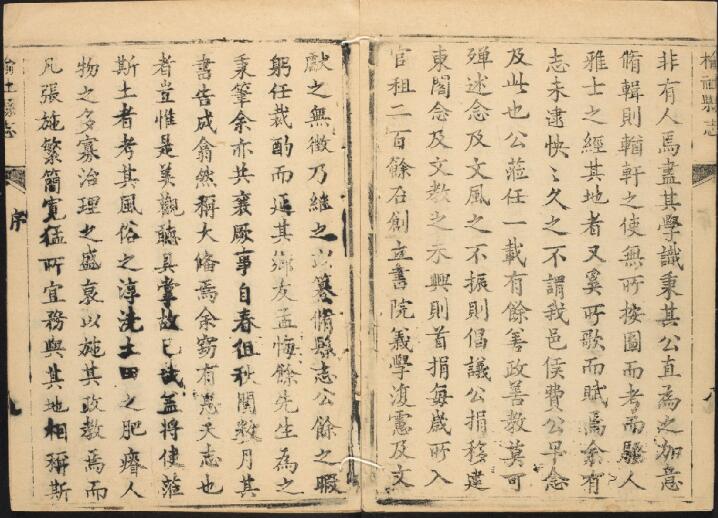 榆社縣志
八
非有人焉盡其學識秉其公直為之加意
脩輯則輶軒之使無所按圖而考而騷人
雅士之經其地者又奚所歌而賦焉余有
志未逮怏〻久之不謂我邑侯費公早念
及此也公蒞任一載有餘善政善教莫可
殫述念及文風之不振則倡議公捐移建
東閣念及文教之未興則首捐每歲所入
官租二百餘石創立書院義學復慮及文
獻之無徵乃繼之以纂脩縣志公餘之暇
躬任裁酌而延其鄉友孟悔餘先生為之
秉筆余亦共襄厥事自春徂秋閱數月其
書告成翕然稱大備焉余竊有思夫志也
者豈惟是美觀聽具掌故已哉蓋將使蒞
斯土者考其風俗之淳澆土田之肥瘠人
物之多寡治理之盛衰以施其政教焉而
凡張施繁簡寬猛所宜務與其地相稱斯
榆社縣志
序